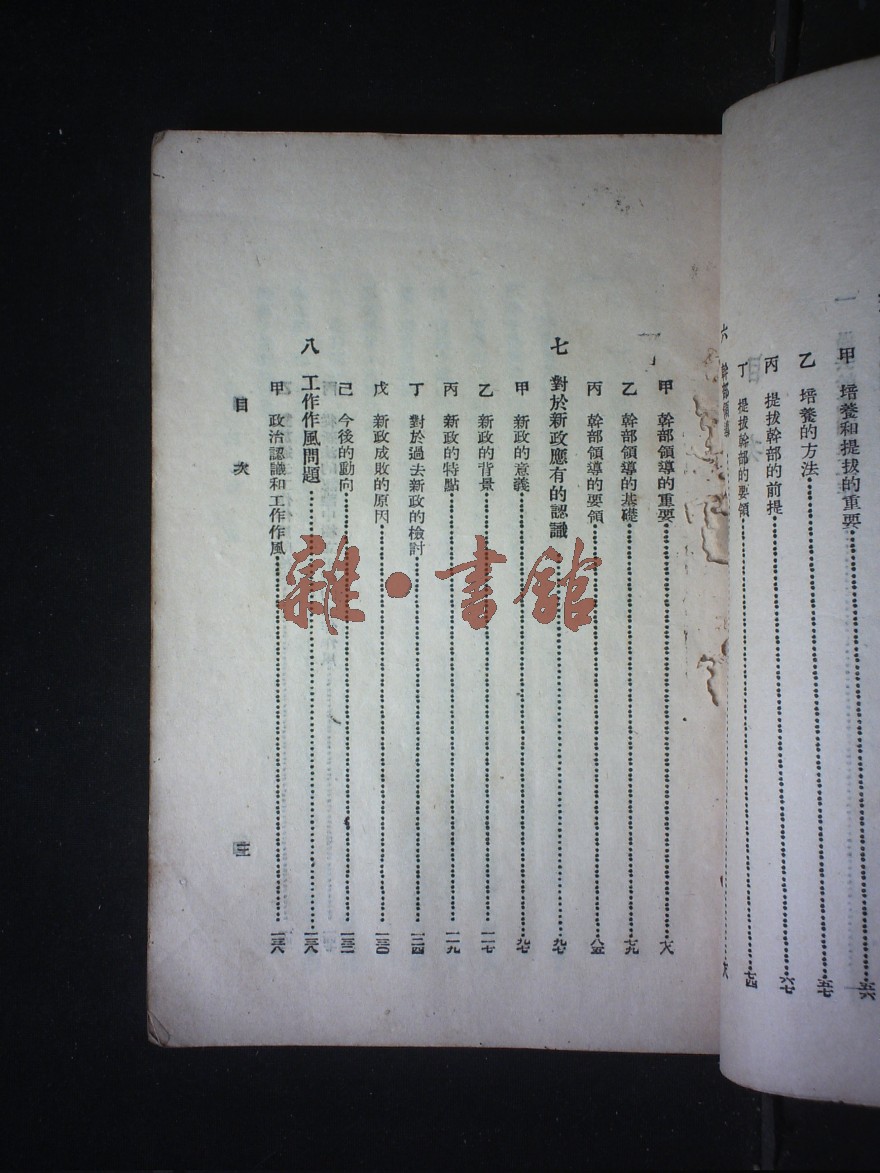 甲 培養和提拔的重要 五六
乙 培養的方法 五七
丙 提拔幹部的前提 六七
丁 提拔幹部的要領 七四
六 幹部領導
甲 幹部領導的重要 七八
乙 幹部領導的基礎 七九
丙 幹部領導的要領 八五
七 對於新政應有的認識 九七
甲 新政的意義 九七
乙 新政的背景 一一七
丙 新政的特點 一一九
丁 對於過去新政的檢討 一二四
戊 新政成敗的原因 一三〇
己 今後的動向 一三二
八 工作作風問題 一三八
甲 政治認識和工作作風 一三八
目次 三
雜·書館